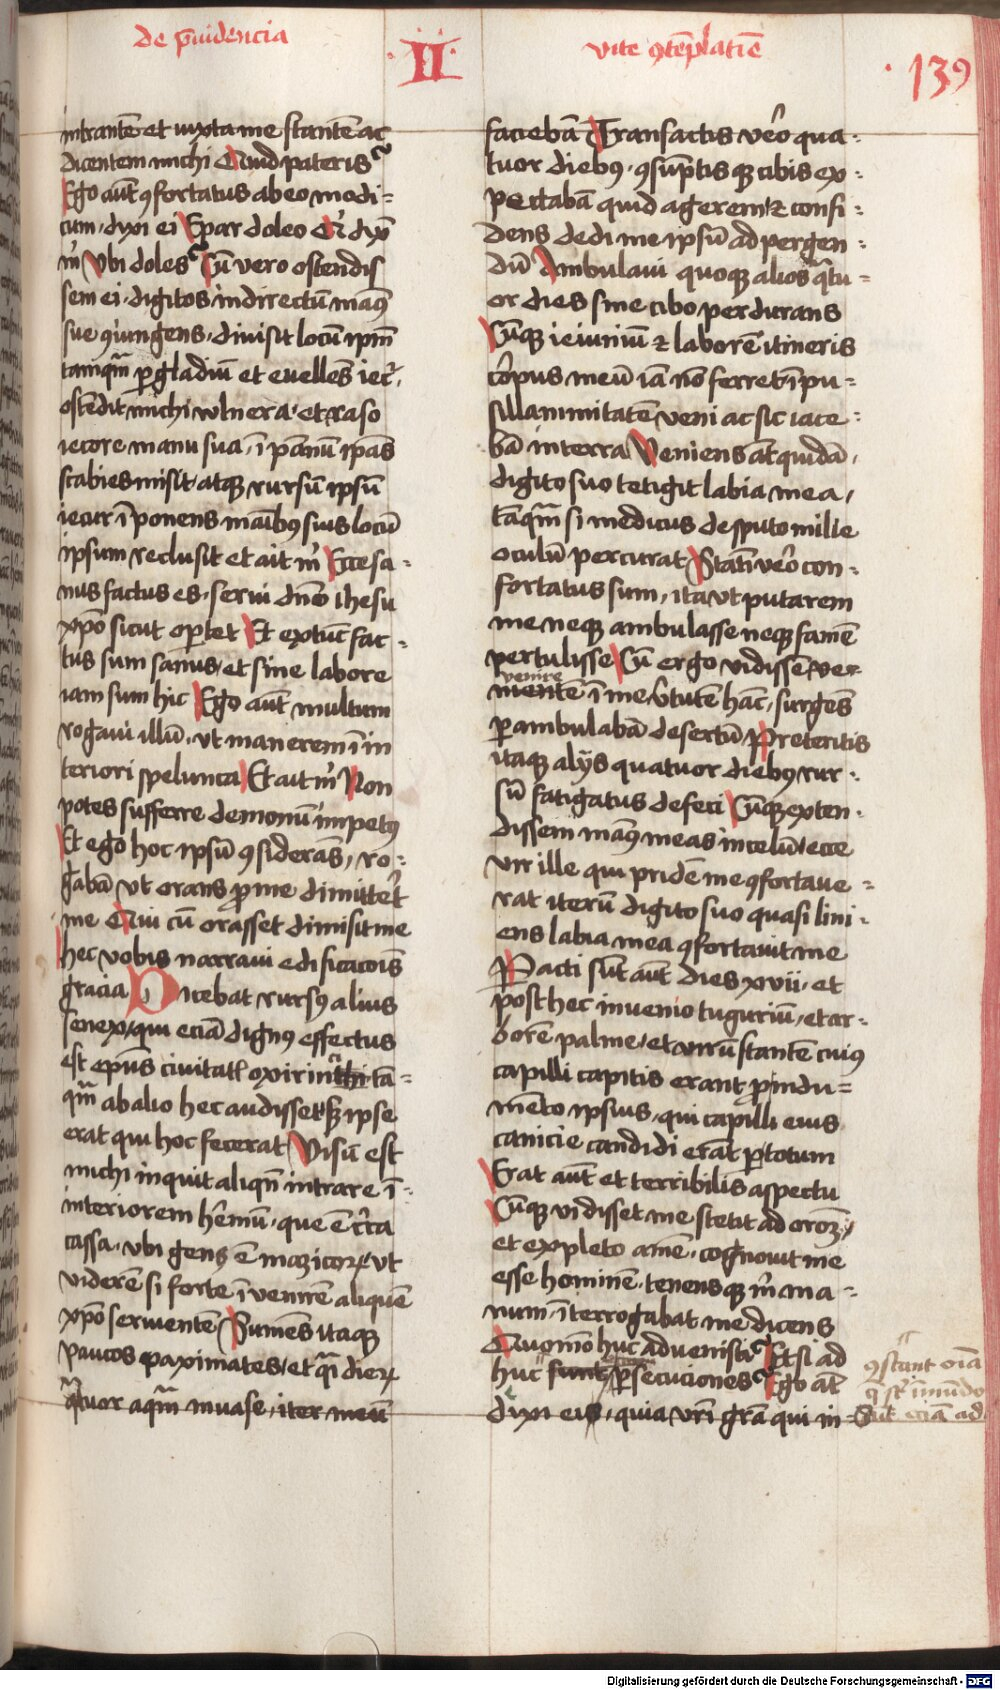 de p̄uidencia
II
vite ꝯtēplatiē
139
intrantē et iuxta me stantē ac
dicentem michi Quid pateris
Ego aūt ꝯfortatus ab eo modi-
cum dixi ei Epar doleo Et dix̄
m̄ Vbi doles Cū vero ostendis
sem ei digitos in directū man⁹
sue ꝯiungens diuisit locū ip̄m
tamqm̄ ꝑ gladiū et euellēs iec̄
ostēdit michi vlnera et raso
iecore manu sua ī pānū ip̄as
scabies misit atqꝫ rursū ipsū
iecur īponens manib⁹ suis locū
ipsum reclusit et ait m̄ Ecce sa-
nus factus es serui dn̄o ihesu
xp̄o sicut oportet Et extūc fac-
tus sum sanus et sine labore
iam sum hic Ego aūt multum
rogaui illū vt manerem ī in
teriori spelunca Et ait m̄ Non
potes sufferre demonū impet⁹
Et ego hoc ipsū ꝯsiderās ro-
gabā vt orans ꝓ me dimitteret
me Qui cū orasset dimisit me
hec vobis narraui edificacōis
gracia Dicebat rursꝰ alius
senex qui eciā dignꝰ effectus
est ep̄us ciuitatꝭ oxirinthi tā-
qm̄ ab alio hec audisset sꝫ ipse
erat qui hoc fecerat Visū est
michi inquit aliqn̄ intrare ī
interiorem hēmū que ē c̄rca
cassa vbi genꝰ ē mazicoꝝ vt
viderē si forte īvenirē aliquē
xp̄o seruientē Sumēs itaqꝫ
paucos paximates et qͣ̄ dieꝝ
qͣtuor aqm̄ inuase iter meū
faciebā Transactis vero qua-
tuor diebꝰ ꝯsūptis qꝫ cibis ex-
pectabā quid agerem et confi-
dens dedi me ipsū ad pergen-
dū Ambulaui quoqꝫ alios qͣtu-
or dies sine cibo perdurans
Cūqꝫ ieiuniū et laborē itineris
corpus meū iā nō ferret ī pu-
sillanimitatē veni ac sic iace-
bā in terra Veniens aūt quidā
digito suo tetigit labia mea
tāqm̄ si medicus desputo mille
oculū percurat Statī vero con-
fortatus sum ita vt putarem
me neqꝫ ambulasse neqꝫ famē
pertulisse Cū ergo vidissē ve-
venire
mentē ī me v̄tutē hāc surgēs
ꝑambulabā desertū Preteritis
itaqꝫ alijs quatuor diebꝰ rur-
sū fatigatus defeci Cūqꝫ exten-
dissem manꝰ meas in celū ecce
vir ille qui pridē me ꝯfortaue-
rat iterū digito suo quasi lini-
ens labia mea ꝯfortauit me
Facti sūt aūt dies xvii et
post hec inuenio tuguriū et ar-
borē palme et virū stantē cuiꝰ
capilli capitis erant ꝓ indu-
mēto ipsius qui capilli eius
canicie candidi erāt ꝑ totum
Erat aūt et terribilis aspectu
Cūqꝫ vidisset me stetit ad oroꝫ
et expleto amē cognouit me
esse hominē tenensqꝫ m̄ ma-
num īterrogabat me dicens
Quomō huc aduenisti Et si ad
huc sunt ꝑsecuciones Ego aūt
dixi eis quia vrī gr̄a qui in
ꝯstant oīa
q̄ sūt ī mūdo
sūt eciā ad
Digitalisierung gefördert durch die Deutsche Forschungsgemeinschaft - DFG